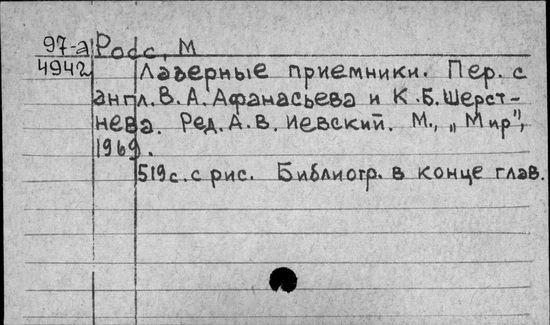 97-а Росс, М
4942 Лазерные приемники. Пер. с
англ. В. А. Афанасьева и К. Б. Шерст-
нева. Ред. А. В. Иевский. М., „Мир",
1969.
519 с. с рис. Библиогр. в конце глав.